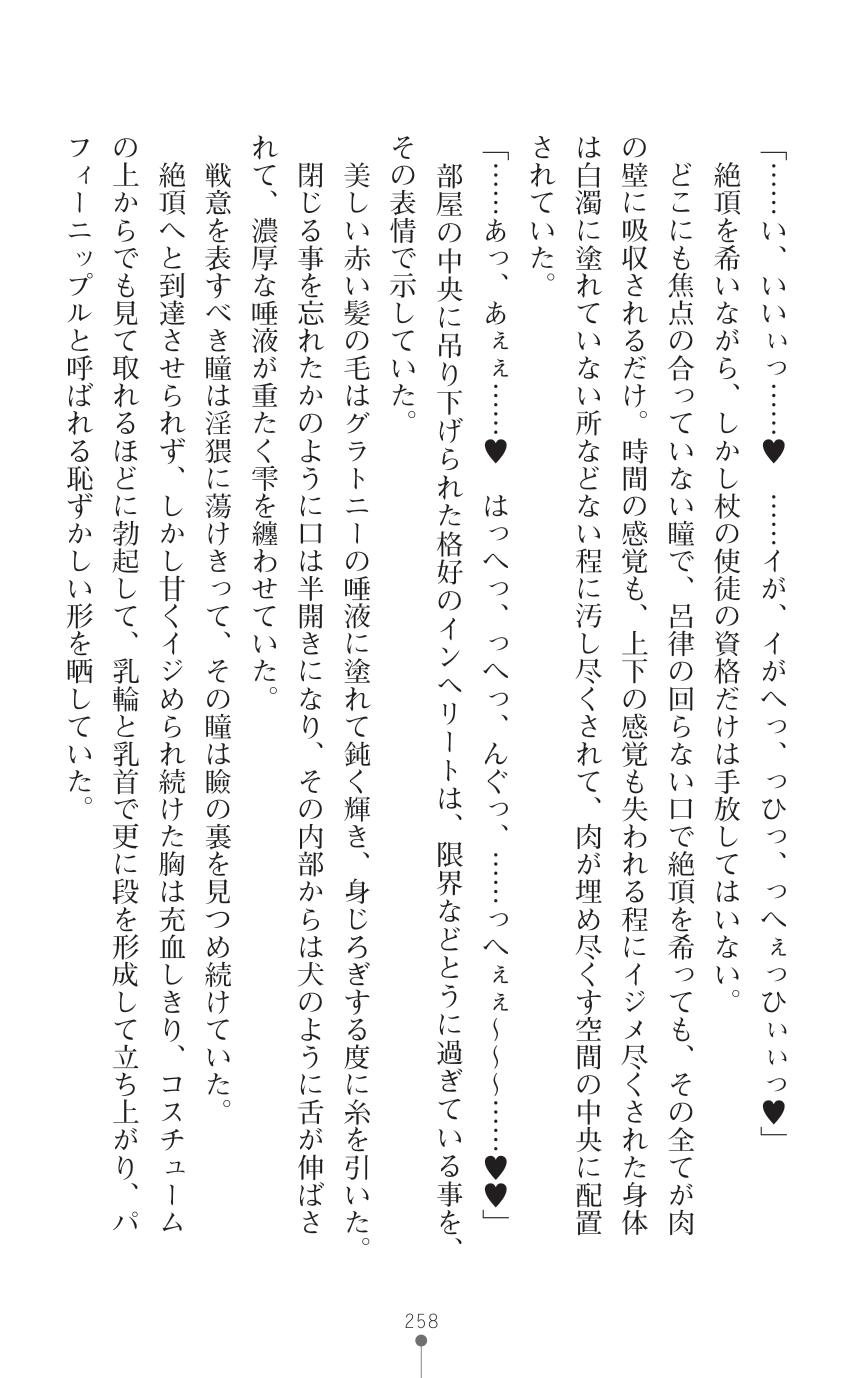 「……い、いいぃっ……♥　……イが、イがへっ、っひっ、っへぇっひぃぃっ♥」
　絶頂を希いながら、しかし杖の使徒の資格だけは手放してはいない。
　どこにも焦点の合っていない瞳で、呂律の回らない口で絶頂を希っても、その全てが肉
の壁に吸収されるだけ。時間の感覚も、上下の感覚も失われる程にイジメ尽くされた身体
は白濁に塗れていない所などない程に汚し尽くされて、肉が埋め尽くす空間の中央に配置
されていた。
「……あっ、あぇぇ……♥　はっへっ、っへっ、んぐっ、……っへぇぇ～～～……♥♥」
　部屋の中央に吊り下げられた格好のインヘリートは、限界などとうに過ぎている事を、
その表情で示していた。
　美しい赤い髪の毛はグラトニーの唾液に塗れて鈍く輝き、身じろぎする度に糸を引いた。
　閉じる事を忘れたかのように口は半開きになり、その内部からは犬のように舌が伸ばさ
れて、濃厚な唾液が重たく雫を纏わせていた。
　戦意を表すべき瞳は淫猥に蕩けきって、その瞳は瞼の裏を見つめ続けていた。
　絶頂へと到達させられず、しかし甘くイジめられ続けた胸は充血しきり、コスチューム
の上からでも見て取れるほどに勃起して、乳輪と乳首で更に段を形成して立ち上がり、パ
フィーニップルと呼ばれる恥ずかしい形を晒していた。
258